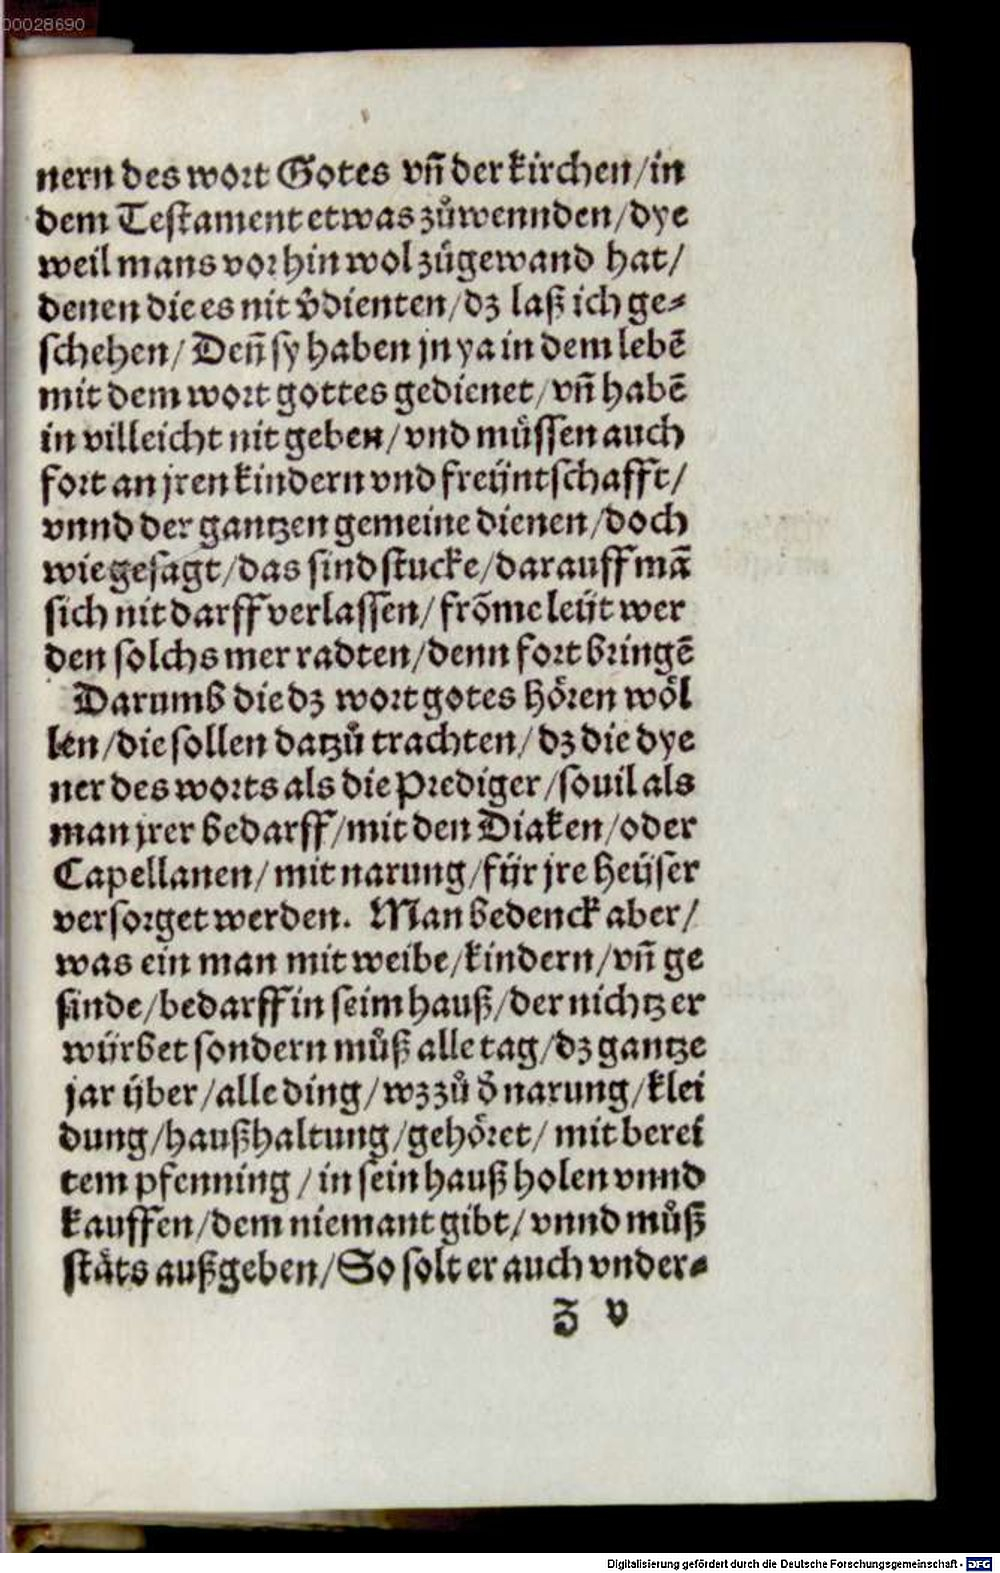 00028690
nern des wort Gotes vñ der kirchen/in
dem Testament etwas zůwennden/dye
weil mans vorhin wol zůgewand hat/
denen die es nit v̊dienten/dz laß ich ge⸗
schehen/ Deñ sy haben jn ya in dem lebē
mit dem wort gottes gedienet/vñ habē
in villeicht nit geben/vnd müssen auch
fort an jren kindern vnd freüntschafft/
vnnd der gantzen gemeine dienen/doch
wie gesagt/das sind stucke/darauff mā
sich nit darff verlassen/frōme leüt wer
den solchs mer radten/denn fort bringē
Darumb die dz wort gotes hören wöl
len/die sollen datzů trachten/dz die dye
ner des worts als die Prediger/souil als
man jrer bedarff/mit den Diaken/oder
Capellanen/mit narung/für jre heüser
versorget werden. Man bedenck aber/
was ein man mit weibe/kindern/vñ ge
sinde/bedarff in seim hauß/der nichtz er
würbet sondern můß alle tag/dz gantze
jar über/alle ding/wz zů d̊ narung/klei
dung/haußhaltung/gehöret/mit berei
tem pfenning/in sein hauß holen vnnd
kauffen/dem niemant gibt/vnnd můß
stäts außgeben/So solt er auch vnder⸗
Z v
Digitalisierung gefördert durch die Deutsche Forschungsgemeinschaft - DFG